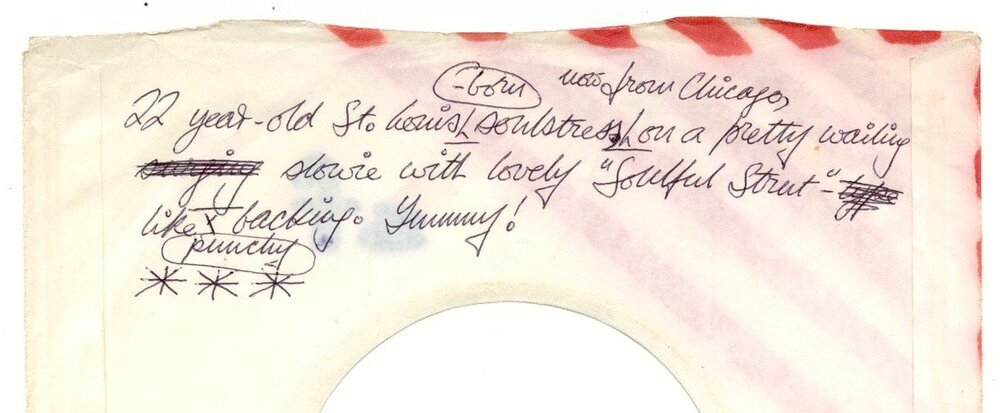 -born now from Chicago,
22 year-old St. Louis soulstress, on a pretty wailing
slowie with lovely "Soulful Strut"-
like backing. Yummy!
punchy
***